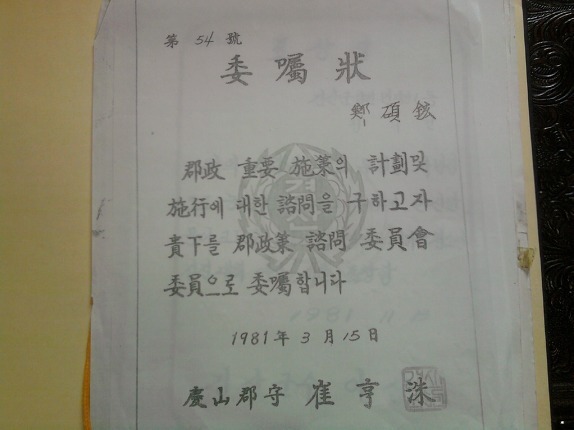 第 54 號
委囑狀
鄭碩鉉
郡政 重要 施策의 計劃및
施行에 대한 諮問을 구하고자
貴下를 郡政策 諮問 委員會
委員으로 委囑합니다
1981年 3月 15日
慶山郡守 崔亨洙